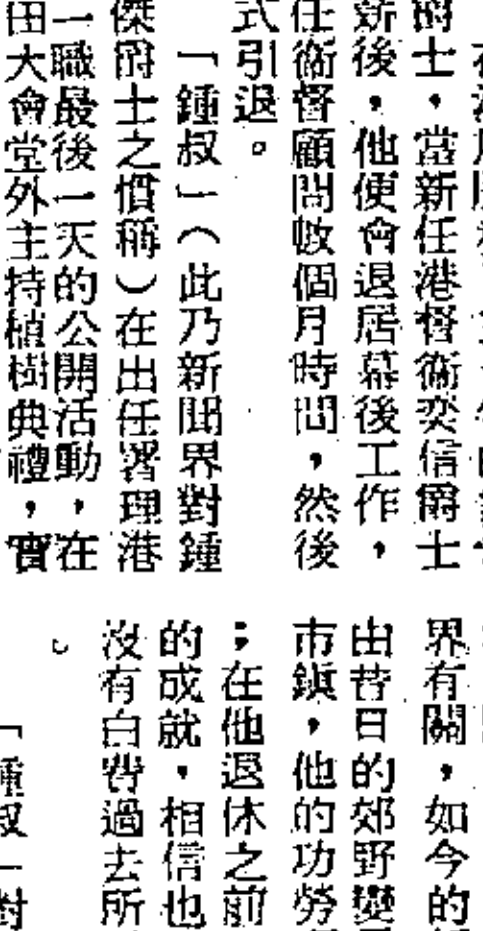 爵士,當新任港督衞奕信爵士
新後,他便會退居幕後工作,
任衞督顧問數個月時間,然後
式引退。
「鍾叔」(此乃新聞界對鍾
傑爵士之慣稱)在出任署理港
一職最後一天的公開活動,在
田大會堂外主持植樹典禮,實
界有關,如今的
由昔日的郊野變
市鎮,他的功勞
;在他退休之前
的成就,相信也
沒有白費過去所
。
「鍾叔」對